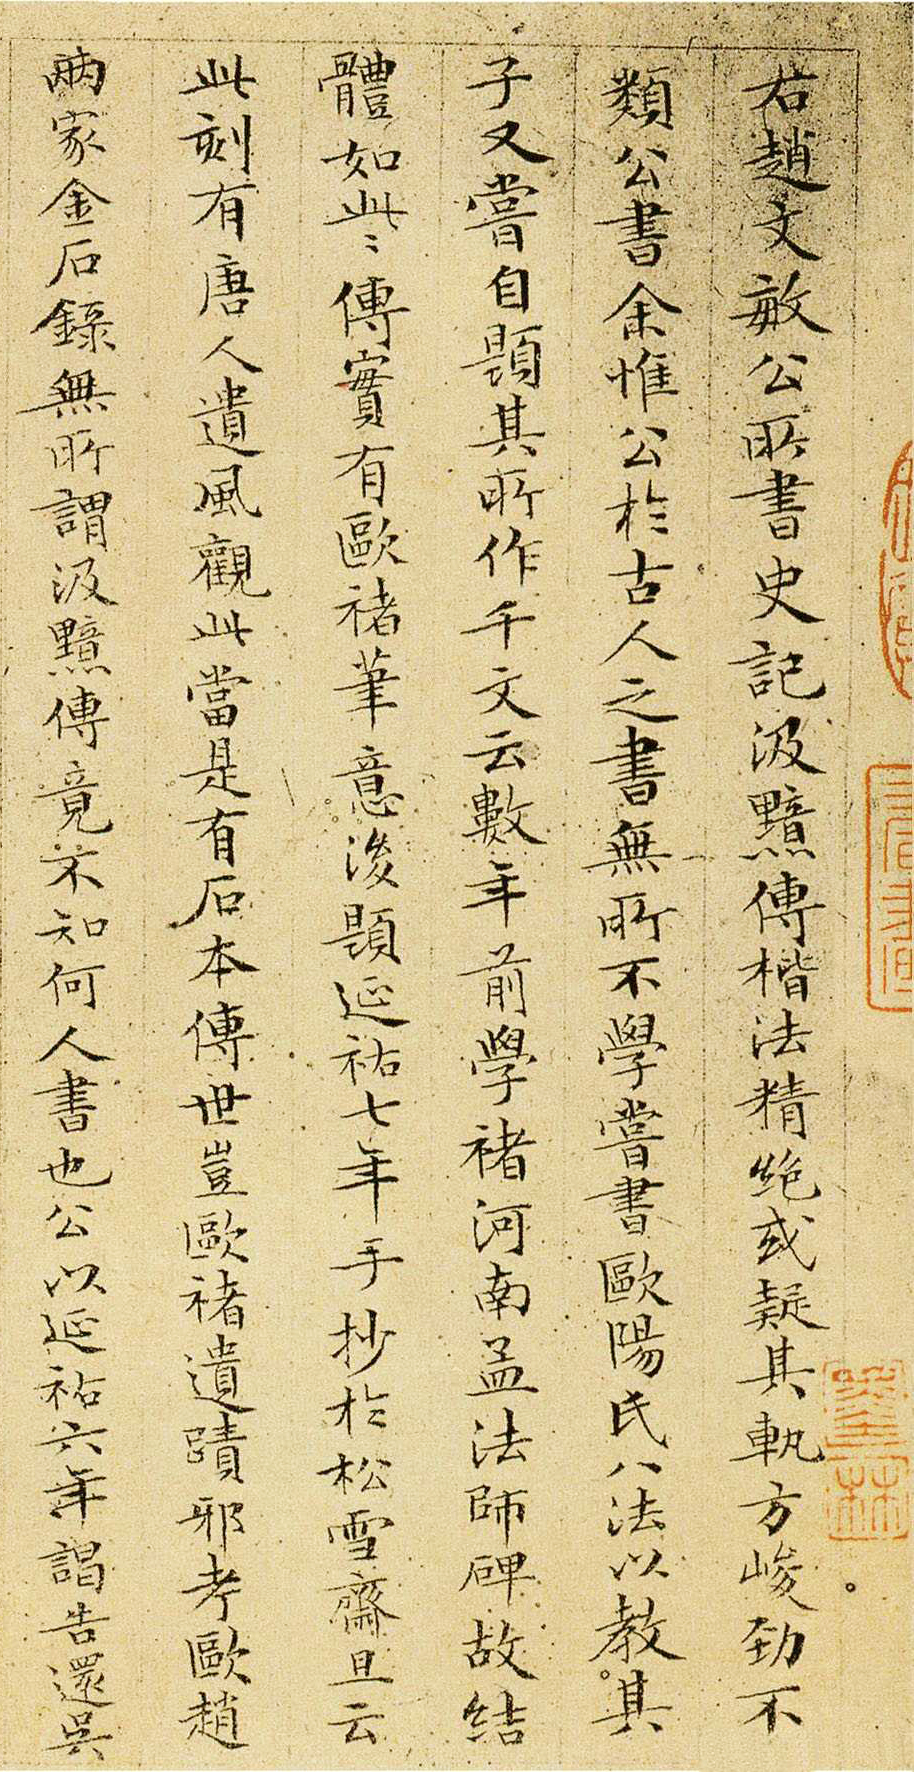 右趙文敏公所書史記汲黯傳楷法精絕或疑其軌方峻勁不
類公書余惟公於古人之書無所不學嘗書歐陽氏八法以教其
子又嘗自題其所作千文云數年前學褚河南孟法師碑故結
體如此〻傳實有歐褚筆意後題延祐七年手抄於松雪齋且云
此刻有唐人遺風觀此當是有石本傳世豈歐褚遺蹟邪考歐趙
兩家金石錄無所謂汲黯傳竟不知何人書也公以延祐六年謁告還吳